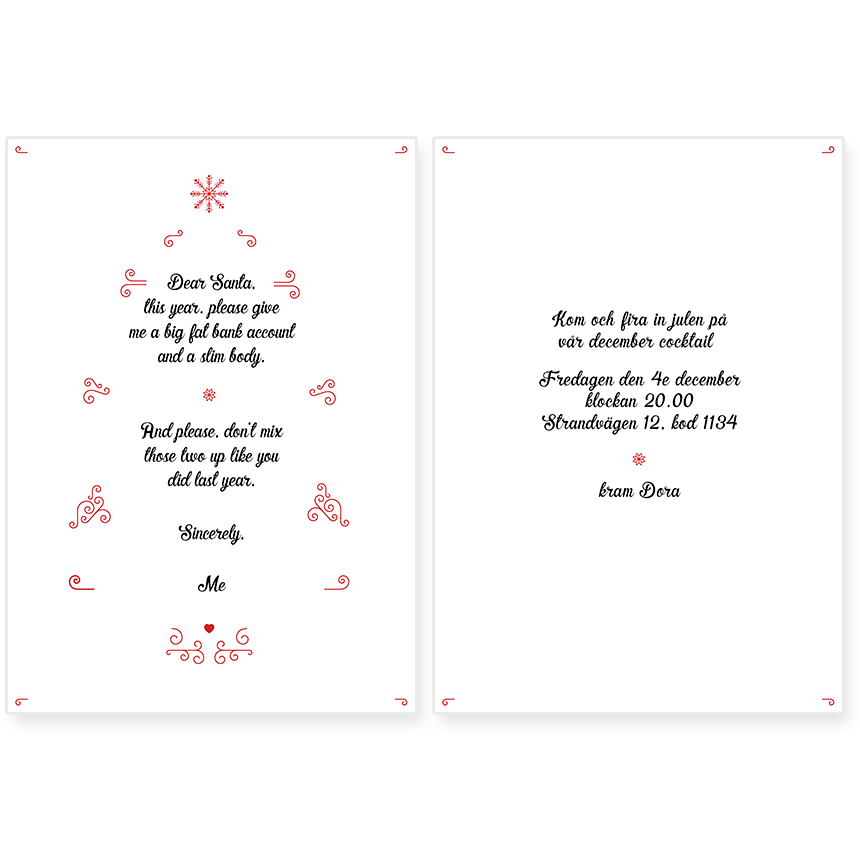 Dear Santa,
this year, please give
me a big fat bank account
and a slim body.
And please, don't mix
those two up like you
did last year.
Sincerely,
Me
Kom och fira in julen på
vår december cocktail
Fredagen den 4e december
klockan 20.00
Strandvägen 12, kod 1134
kram Dora